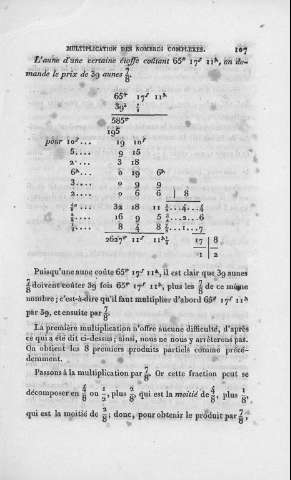 MULTIPLICATION DES NOMBRES COMPLEXES. 107
L'aune d'une certaine étoffe coûtant 65# 17ſ 11₰, on de-
mande le prix de 39 aunes 7/8.
65# 17ſ 11₰
39ª 7/8
585#
195
pour 10ſ... 19 10ſ
5.... 9 15
2.... 3 18
6₰... 0 19 6₰
3.... 0 9 9
2.... 0 6 6 | 8
4/8.... 32 18 11 4/8...4...4
2/8.... 16 9 5 6/8...2...6
1/8.... 8 4 8 7/8...1...7
2627# 11ſ 11₰ 1/8 17 | 8
1 | 2
Puisqu'une aune coûte 65# 17ſ 11₰, il est clair que 39 aunes
7/8 doivent coûter 39 fois 65# 17ſ 11₰, plus les 7/8 de ce même
nombre; c'est-à-dire qu'il faut multiplier d'abord 65# 17ſ 11₰
par 39, et ensuite par 7/8.
La première multiplication n'offre aucune difficulté, d'après
ce qui a été dit ci-dessus; ainsi, nous ne nous y arrêterons pas.
On obtient les 8 premiers produits partiels comme précé-
demment.
Passons à la multiplication par 7/8. Or cette fraction peut se
décomposer en 4/8 ou 1/2, plus 2/8, qui est la moitié de 4/8, plus 1/8,
qui est la moitié de 2/8; donc, pour obtenir le produit par 7/8,